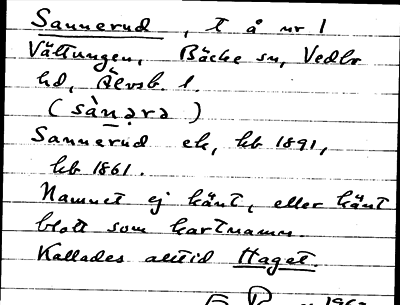 Sannerud, t å nr 1
Vältungen, Bäcke sn, Vedbo
hd, Älvsb. l.
(sànərə)
Sannerud ek, kb 1891,
hb 1861.
Namnet ej känt, eller känt
blott som kartnamn.
Kallades alltid Haget.